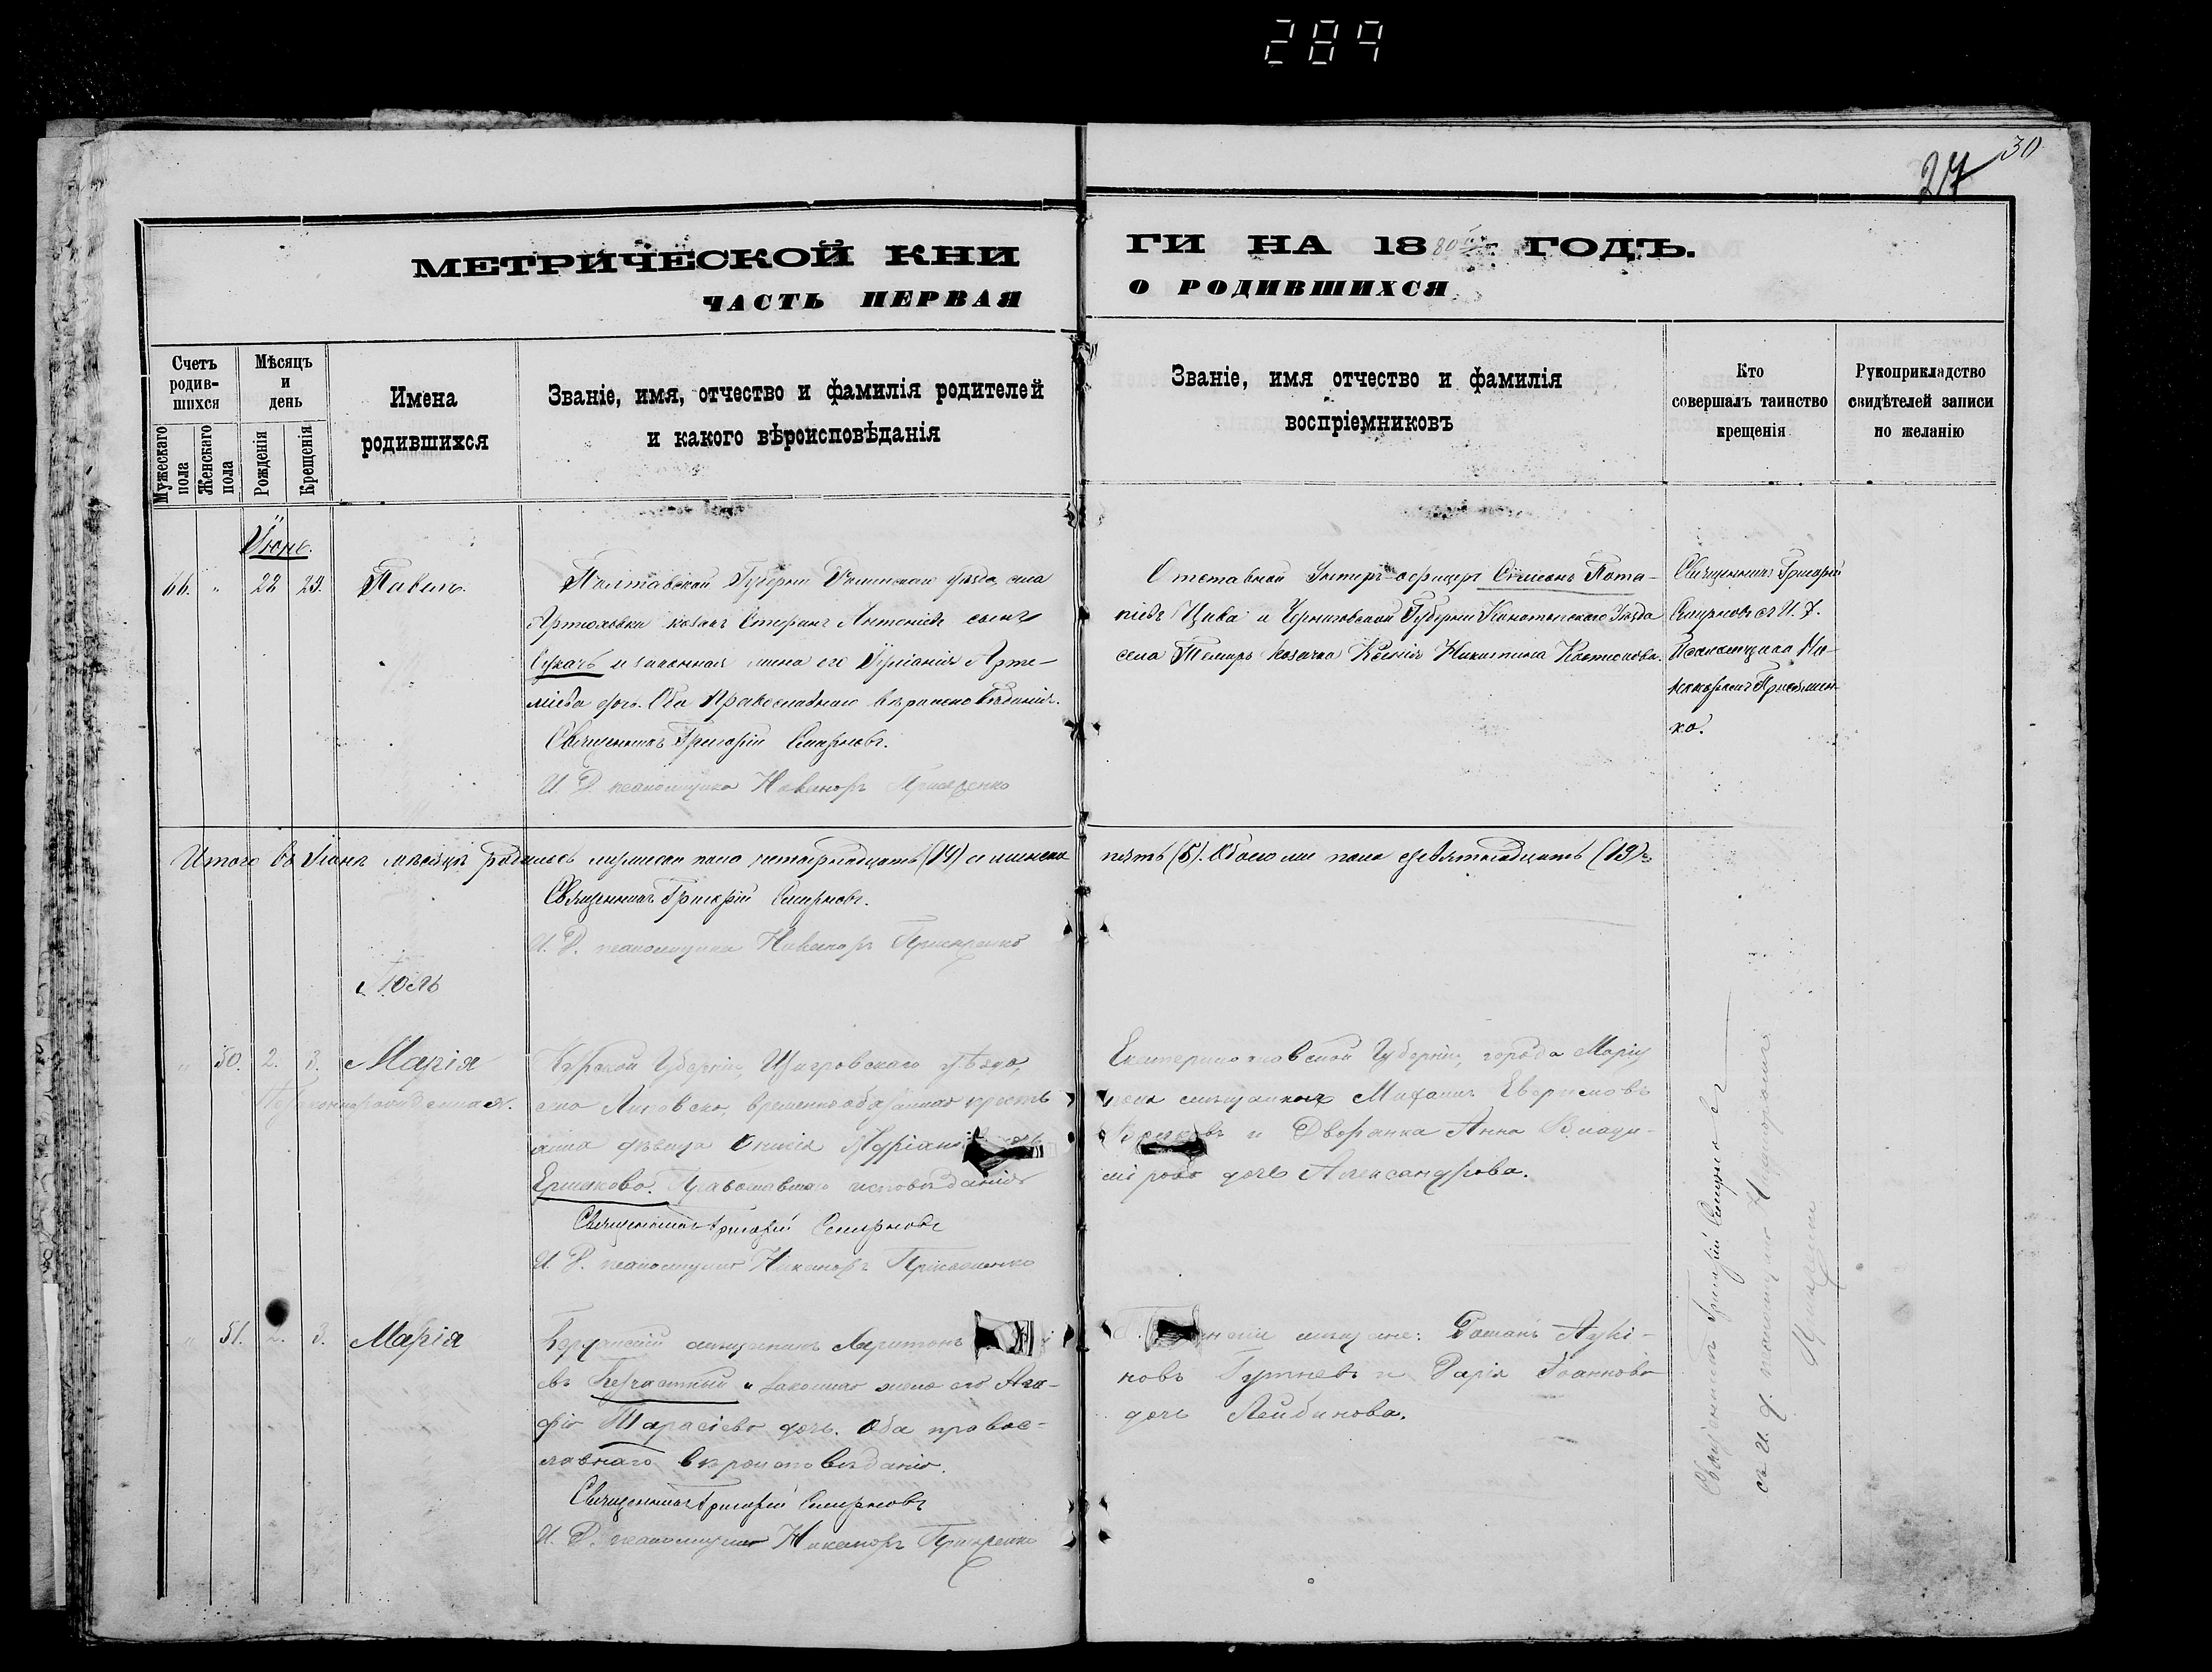 289
30
27
МЕТРИЧЕСКОЙ КНИ
ГИ НА 1880 ГОДЪ.
ЧАСТЬ ПЕРВАЯ
О РОДИВШИХСЯ
Счетъ родив-шихся
Мужескаго пола
Женскаго пола
Мѣсяцъ и день
Рожденія
Крещенія
Имена родившихся
Званіе, имя, отчество и фамилія родителей
и какого вѣроисповѣданія
Званіе, имя отчество и фамилія
воспріемниковъ
Кто
совершалъ таинство
крещенія
Рукоприкладство
свидѣтелей записи
по желанію
Іюнь.
66. " 28 29. Павелъ.
Полтавской Губерніи Роменскаго уѣзда, села
Артюховки козакъ Стефанъ Антоніевъ сынъ
и законная жена его Іуліанія Арте-
міева дочь. Оба Православнаго вѣроисповѣданія.
Священникъ Григорій Смирновъ.
И. Д. псаломщика Никаноръ
Отставной Унтеръ-офицеръ Симеонъ Пота-
піевъ Цива и Черниговской Губерніи Конотопскаго Уѣзда
села козачка Ксенія Никитина
Священникъ Григорій
Смирновъ съ И. Д.
Псаломщика Ни-
каноромъ
ко.
Итого въ Іюнѣ мѣсяцѣ родилось мужеска пола четырнадцать (14) и женска
пять (5). Обоего же пола девятнадцать (19).
Священникъ Григорій Смирновъ.
И. Д. псаломщика Никаноръ
Іюль
" 50. 2. 3. Марія
Незаконнорожденная.
Курской Губерніи, Щигровскаго уѣзда,
села временнообязанная кресть
янка дѣвица
Ермакова. Православнаго исповѣданія
Священникъ Григорій Смирновъ
И. Д. псаломщика Никаноръ
Екатеринославской Губерніи, города Маріу
поля мѣщанинъ Евфимовъ
и Дворянка Анна Влади-
мірова дочь Александрова.
" 51. 2. 3. Марія
Бердянскій мѣщанинъ Харитонъ
въ Безчастный и законная жена его Ага-
фія Тарасіева дочь. Оба правос-
лавнаго вѣроисповѣданія.
Священникъ Григорій Смирновъ
И. Д. псаломщика Никаноръ
мѣщане: Романъ
новъ и Дарія Іоаннова
дочь
Священникъ Григорій Смирновъ
съ И. д. псаломщика Никаноромъ